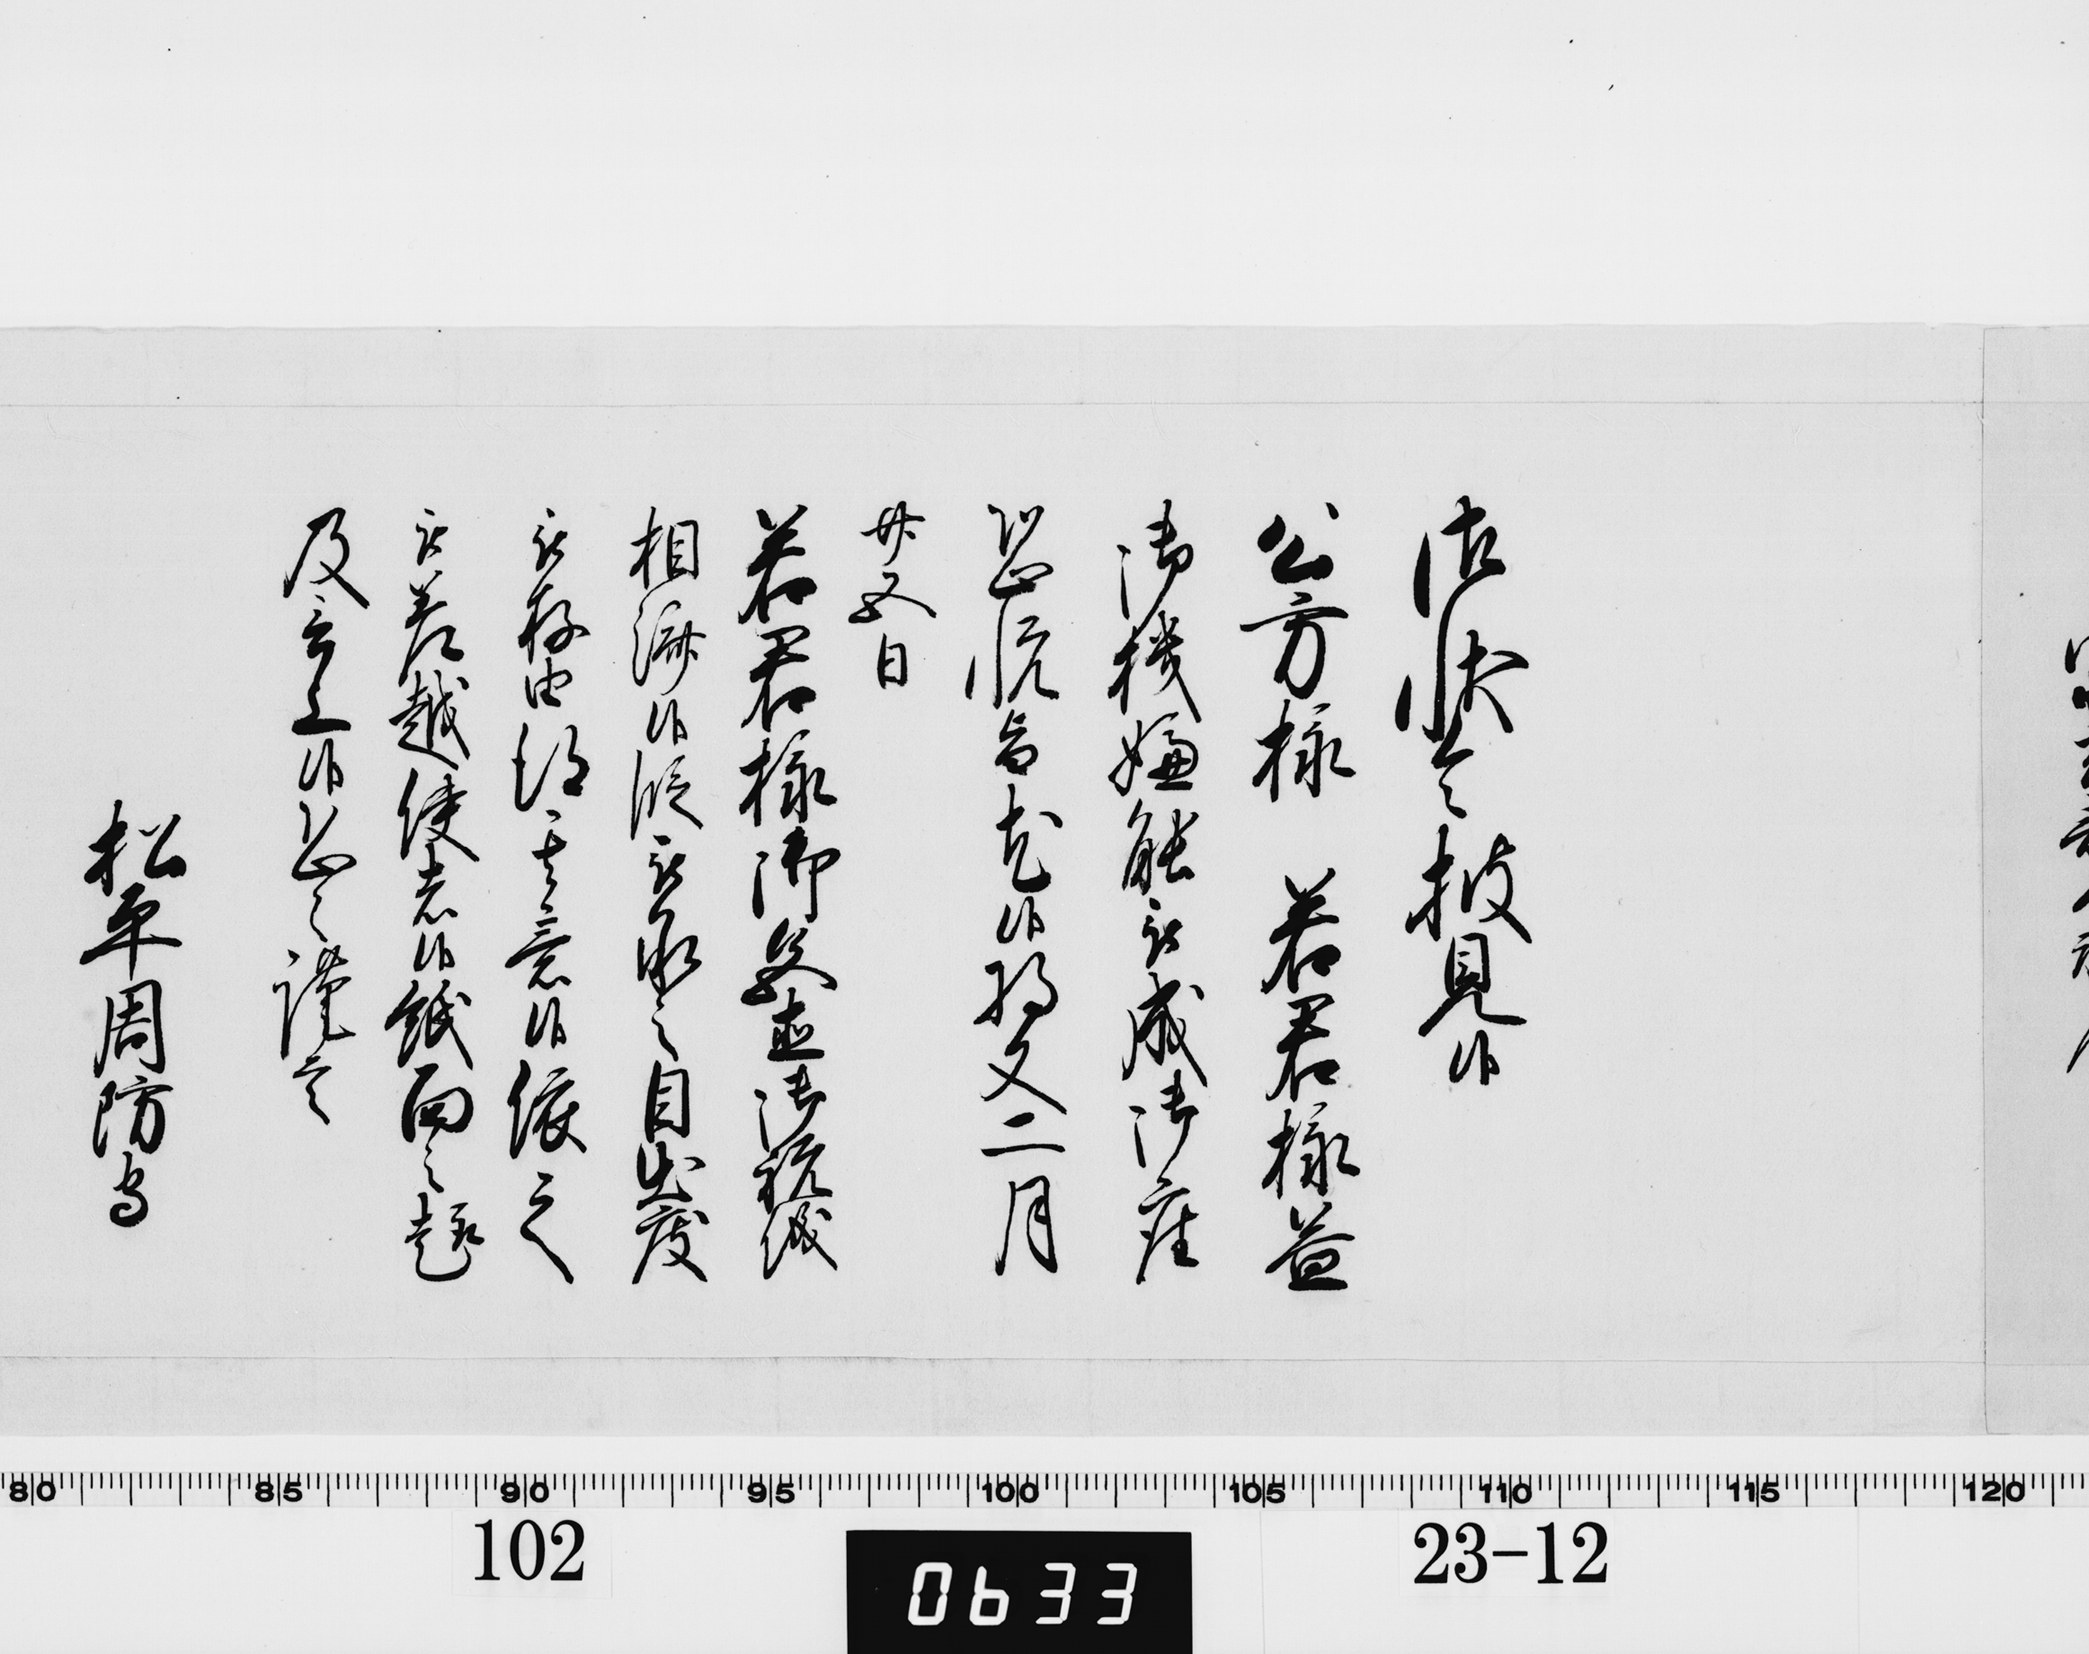 御状令披見候
公方様 若君様益
御機嫌能被成御座
恐悦旨尤候将又二月
廿五日
若君様御箆並御祝儀
相済候段被承之目出度
被存由得其意候依之
被差越使者候紙面之趣
及言上候恐々謹言
松平周防守
80 85 90 95 100 105 110 115 120
102 0633 23-12